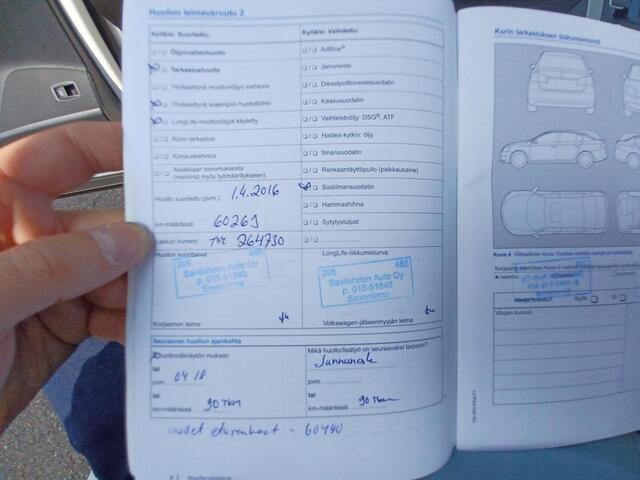 Huollon leimausruutu 2
Kyllä/ei Suoritettu:
Kyllä/ei Vaihdettu:
Öljynvaihtohuolto
AdBlue®
Tarkastushuolto
Jarruneste
Yhdistettynä moottoriöljyn vaihtoon
Dieselpolttonestesuodatin
Yhdistettynä laajempiin huoltotöihin
Kaasusuodatin
LongLife-moottoriöljyä käytetty
Vaihteistoöljy: DSG®, ATF
Korin tarkastus
Haldex-kytkin: öljy
Korjauskehotus
Ilmansuodatin
Asiakkaan toivomuksesta
(merkintä myös työmääräykseen)
Renkaantäyttöpullo (paikkausaine)
Huolto suoritettu (pvm.) 1.4.2016
Sisäilmansuodatin
Hammashihna
km-määrässä: 60261
Sytytystulpat
Laskun numero: 264730
Huollon suorittanut
LongLife-liikkumisturva:
205 485
Savilahden Auto Oy
p. 015-51840
Savonlinna
205 485
Savilahden Auto Oy
p. 015-51840
Savonlinna
Korjaamon leima
Volkswagen-jälleenmyyjän leima
Seuraavan huollon ajankohta
Huoltovälinäytön mukaan
Mikä huolto/lisätyö on seuraavaksi tarpeen?
tai
Jarruneste
pvm. 04 18
pvm.
tai
tai
km-määrässä 90 Tkm
km-määrässä 90 Tkm
uudet eturenkaat - 60440
Korin tarkastuksen dokumentointi
Kuva 4